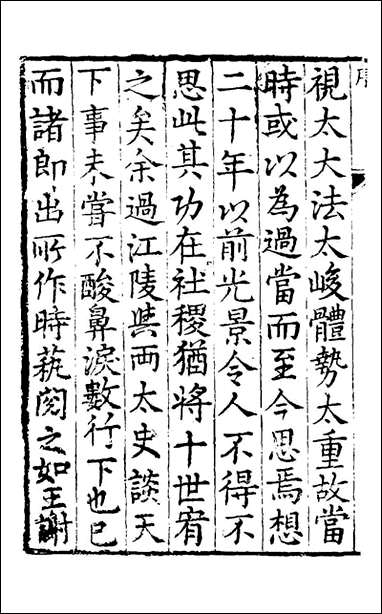 序
視太大法太峻體勢太重故當
時或以為過當而至今思焉想
二十年以前光景令人不得不
思此其功在社稷猶將十世宥
之矣余過江陵與兩太史談天
下事未嘗不酸鼻淚數行下也已
而諸郎出所作時藝閱之如王謝